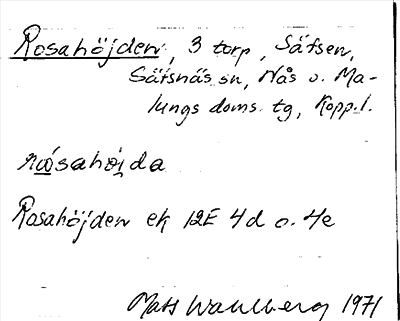 Rosahöjden, 3 torp, Säfsen,
Säfsnäs sn, Nås o. Ma-
lungs doms. tg, Kopp.l.
rώsahöi̯da
Rosahöjden ek 12E 4d o. 4e
Mats Wahlberg 1971